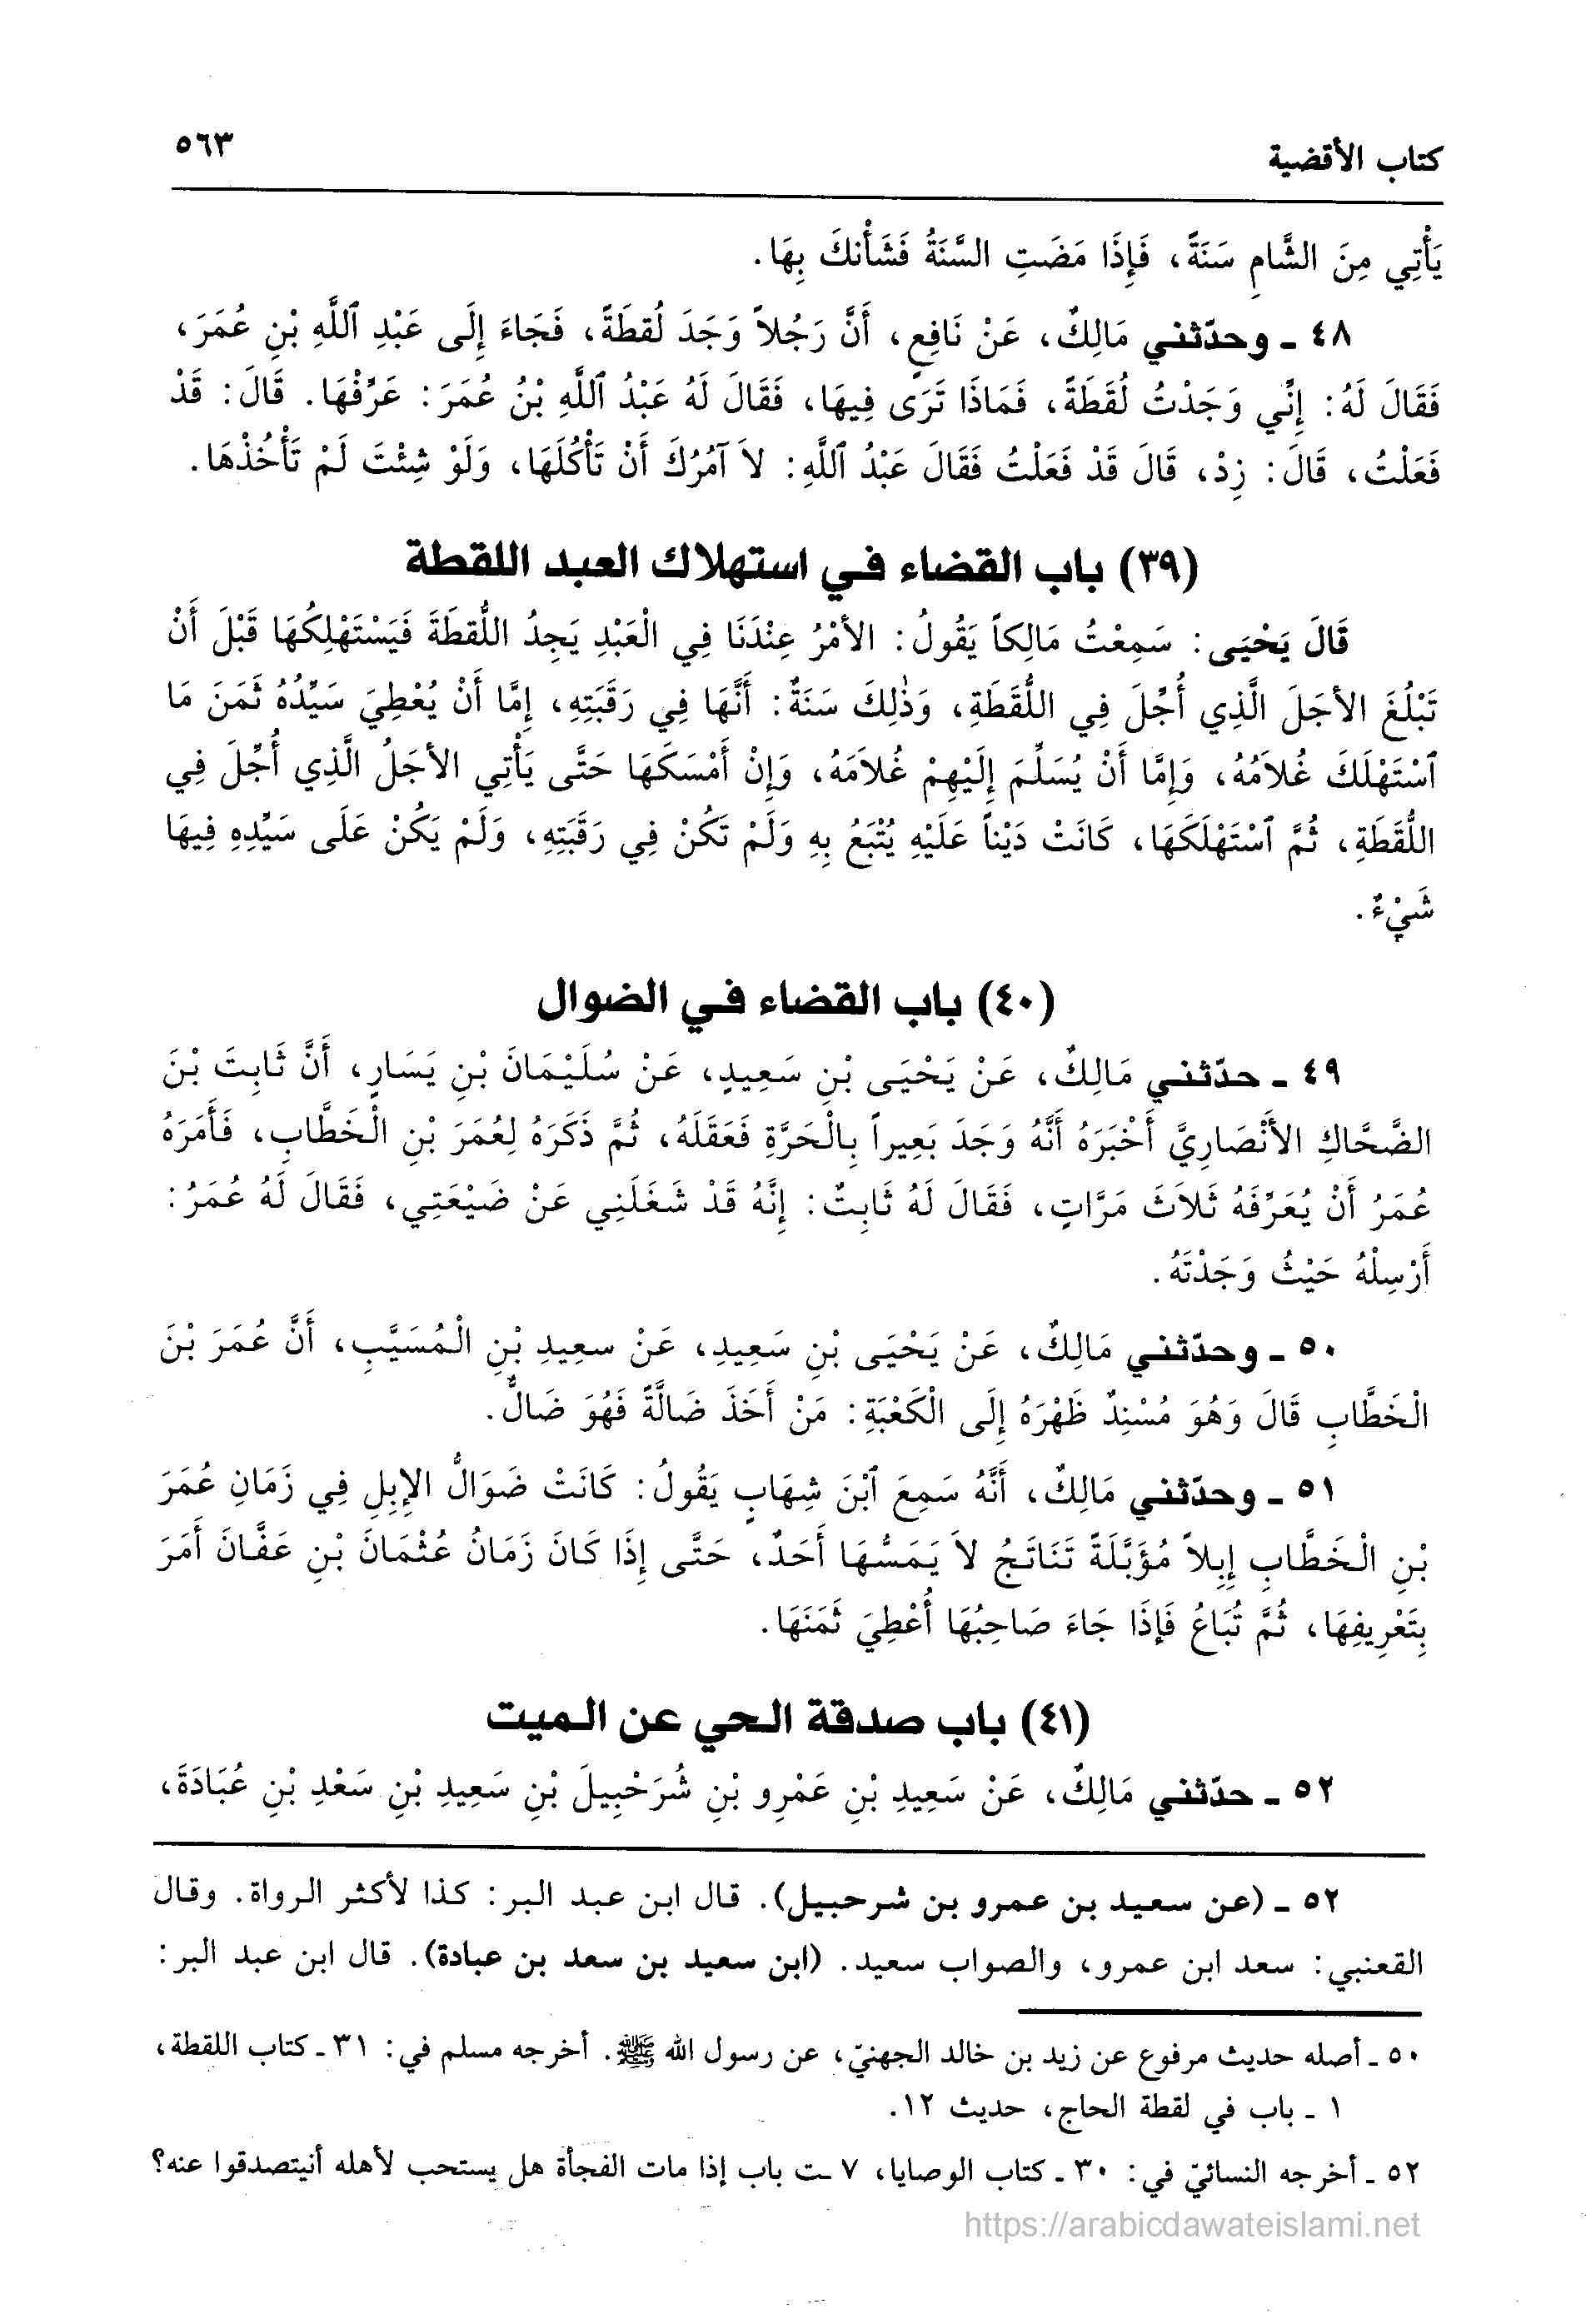 كتاب الأقضية ٥٦٣
يَأْتِي مِنَ الشَّامِ سَنَةً، فَإِذَا مَضَتِ السَّنَةُ فَشَأْنكَ بِهَا.
٤٨ ـ وحدّثني مَالِكٌ، عَنْ نَافِعٍ، أَنَّ رَجُلاً وَجَدَ لُقطَةً، فَجَاءَ إِلَى عَبْدِ ٱللَّهِ بْنِ عُمَرَ،
فَقَالَ لَهُ: إِنِّي وَجَدْتُ لُقَطَةً، فَمَاذَا تَرَى فِيهَا، فَقَالَ لَهُ عَبْدُ ٱللَّهِ بْنُ عُمَرَ: عَرِّفْهَا. قَالَ: قَدْ
فَعَلْتُ، قَالَ: زِدْ، قَالَ قَدْ فَعَلْتُ فَقَالَ عَبْدُ ٱللَّهِ: لاَ آمُرُكَ أَنْ تَأْكُلَهَا، وَلَوْ شِئْتَ لَمْ تَأْخُذْهَا.
(٣٩) باب القضاء في استهلاك العبد اللقطة
قَالَ يَحْيَى: سَمِعْتُ مَالِكاً يَقُولُ: الأمْرُ عِنْدَنَا فِي الْعَبْدِ يَجِدُ اللُّقطَةَ فَيَسْتَهْلِكُهَا قَبْلَ أَنْ
تَبْلُغَ الأجَلَ الَّذِي أُجِّلَ فِي اللُّقَطَةِ، وَذٰلِكَ سَنَةٌ: أَنَّهَا فِي رَقَبَتِهِ، إِمَّا أَنْ يُعْطِيَ سَيِّدُهُ ثَمَنَ مَا
ٱسْتَهْلَكَ غُلاَمُهُ، وَإِمَّا أَنْ يُسَلِّمَ إِلَيْهِمْ غُلاَمَهُ، وَإِنْ أَمْسَكَهَا حَتَّى يَأْتِي الأجَلُ الَّذِي أُجِّلَ فِي
اللُّقَطَةِ، ثُمَّ ٱسْتَهْلَكَهَا، كَانَتْ دَيْناً عَلَيْهِ يُتْبَعُ بِهِ وَلَمْ تَكُنْ فِي رَقَبَتِهِ، وَلَمْ يَكُنْ عَلَى سَيِّدِهِ فِيهَا
شَيْءٌ.
(٤٠) باب القضاء في الضوال
٤٩ ـ حدّثني مَالِكٌ، عَنْ يَحْيَى بْنِ سَعِيدٍ، عَنْ سُلَيْمَانَ بْنِ يَسَارٍ، أَنَّ ثَابِتَ بْنَ
الضَّحَّاكِ الأَنْصَارِيَّ أَخْبَرَهُ أَنَّهُ وَجَدَ بَعِيراً بِالْحَرَّةِ فَعَقَلَهُ، ثُمَّ ذَكَرَهُ لِعُمَرَ بْنِ الْخَطَّابِ، فَأَمَرَهُ
عُمَرُ أَنْ يُعَرِّفَهُ ثَلاَثَ مَرَّاتٍ، فَقَالَ لَهُ ثَابِتٌ: إِنَّهُ قَدْ شَغَلَنِي عَنْ ضَيْعَتِي، فَقَالَ لَهُ عُمَرُ:
أَرْسِلْهُ حَيْثُ وَجَدْتَهُ.
٥٠ ـ وحدّثني مَالِكٌ، عَنْ يَحْيَى بْنِ سَعِيدِ، عَنْ سعِيدِ بْنِ الْمُسَيَّبِ، أَنَّ عُمَرَ بْنَ
الْخَطَّابِ قَالَ وَهُوَ مُسْنِدٌ ظَهْرَهُ إِلَى الْكَعْبَةِ: مَنْ أَخَذَ ضَالَّةً فَهُوَ ضَالٌّ.
٥١ ـ وحدّثني مَالِكٌ، أَنَّهُ سَمِعَ ٱبْنَ شِهَابٍ يَقُولُ: كَانَتْ ضَوَالُّ الإِبِلِ فِي زَمَانِ عُمَرَ
بْنِ الْخَطَّابِ إِبِلاً مُؤَبَّلَةً تَنَاتَجُ لاَ يَمَسُّهَا أَحَدٌ، حَتَّى إِذَا كَانَ زَمَانُ عُثْمَانَ بْنِ عَفَّانَ أَمَرَ
بِتَعْرِيفِهَا، ثُمَّ تُبَاعُ فَإِذَا جَاءَ صَاحِبُهَا أُعْطِيَ ثَمَنَهَا.
(٤١) باب صدقة الحي عن الميت
٥٢ ـ حدّثني مَالِكٌ، عَنْ سَعِيدِ بْنِ عَمْرِو بْنِ شُرَحْبِيلَ بْنِ سَعِيدِ بْنِ سَعْدِ بْنِ عُبَادَةَ،
٥٢ ـ (عن سعيد بن عمرو بن شرحبيل). قال ابن عبد البر: كذا لأكثر الرواة. وقال
القعنبي: سعد ابن عمرو، والصواب سعيد. (ابن سعيد بن سعد بن عبادة). قال ابن عبد البر:
٥٠ ـ أصله حديث مرفوع عن زيد بن خالد الجهنيّ، عن رسول الله ﷺ. أخرجه مسلم في: ٣١ ـ كتاب اللقطة،
١ ـ باب في لقطة الحاج، حديث ١٢.
٥٢ ـ أخرجه النسائيّ في: ٣٠ ـ كتاب الوصايا، ٧ ـت باب إذا مات الفجأة هل يستحب لأهله أنيتصدقوا عنه؟
https://arabicdawateislami.net